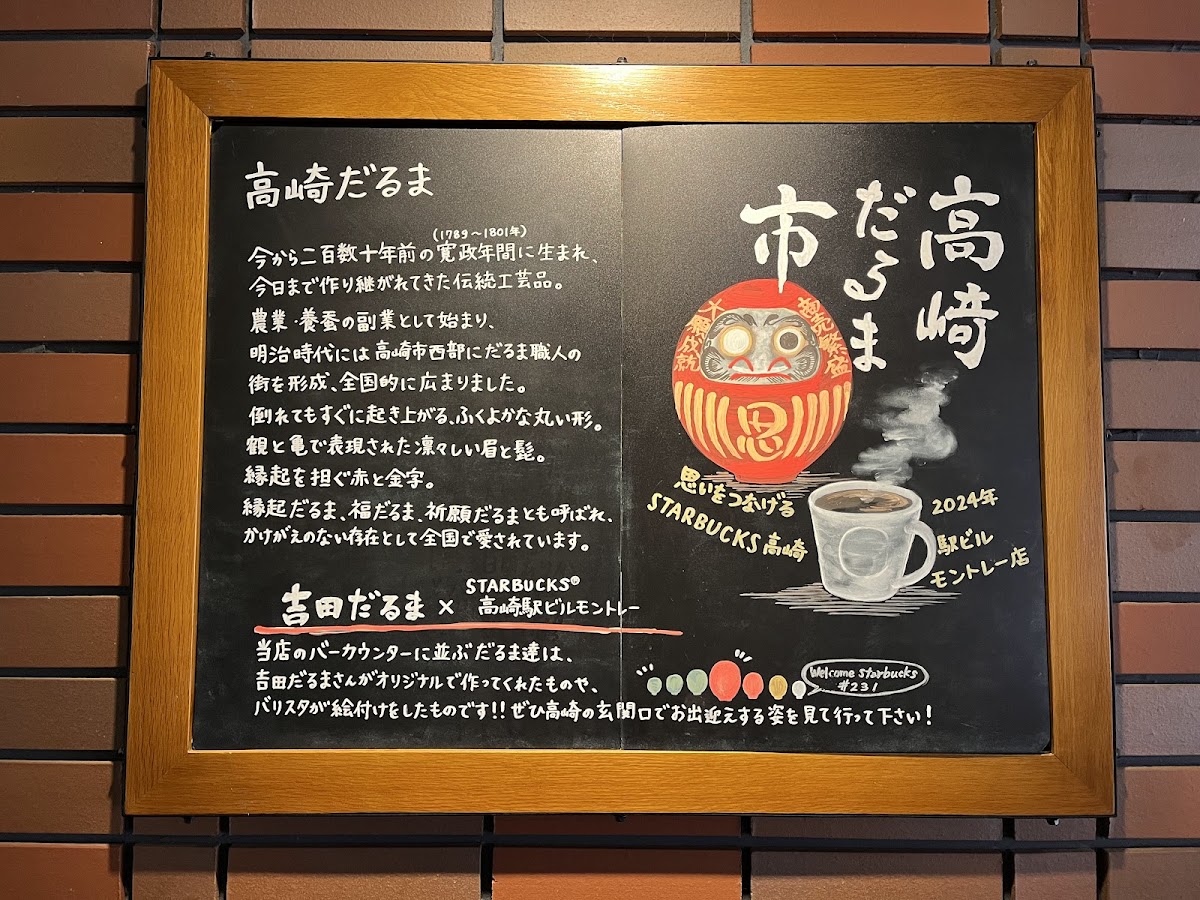 高崎だるま
(1789～1801年)
今から二百数十年前の寛政年間に生まれ、
今日まで作り継がれてきた伝統工芸品。
農業・養蚕の副業として始まり、
明治時代には高崎市西部にだるま職人の
街を形成、全国的に広まりました。
倒れてもすぐに起き上がる、ふくよかな丸い形。
観と亀で表現された凛々しい眉と髭。
縁起を担ぐ赤と金字。
縁起だるま、福だるま、祈願だるまとも呼ばれ、
かけがえのない存在として全国で愛されています。
吉田だるま × STARBUCKS®
高崎駅ビルモントレー
当店のバーカウンターに並ぶだるま達は、
吉田だるまさんがオリジナルで作ってくれたものや、
バリスタが絵付けをしたものです!! ぜひ高崎の玄関口でお出迎えする姿を見て行って下さい!
高崎
だるま
市
商売繁盛
大願成就
思
思いをつなげる
STARBUCKS 高崎
2024年
駅ビル
モントレー店
Welcome Starbucks
#231